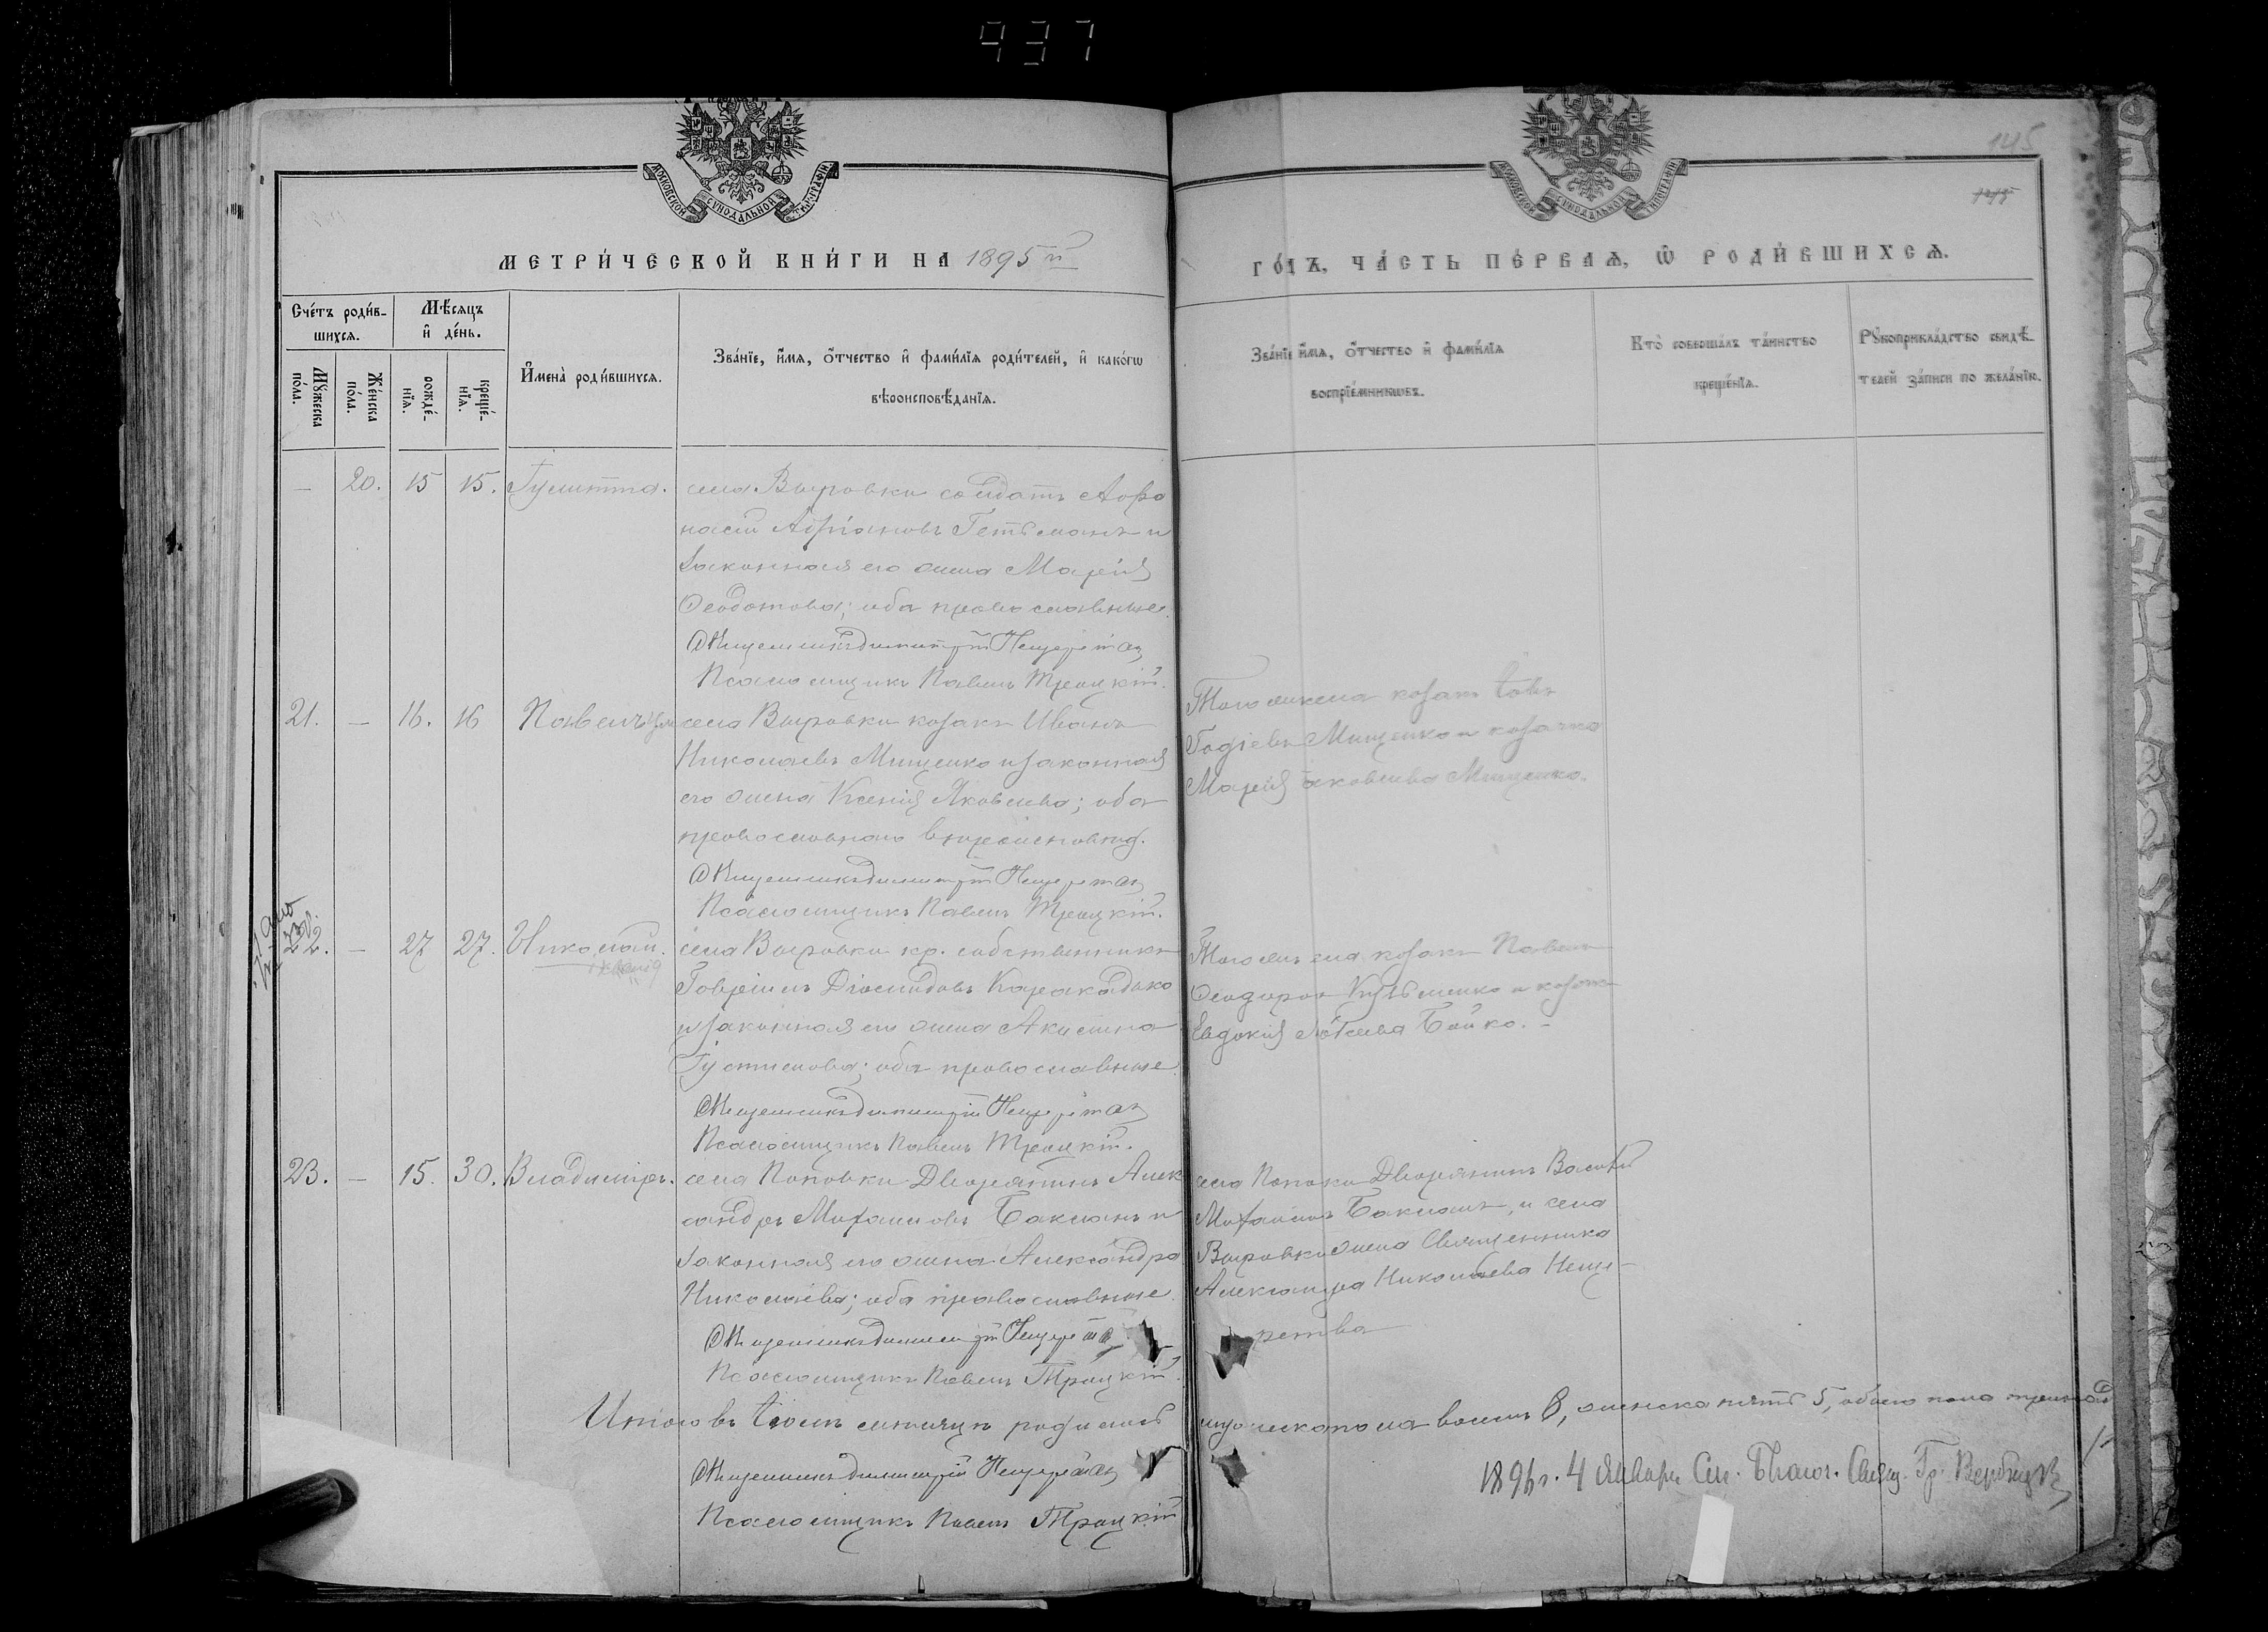 937
МОСКОВСКОЙ СУНОДАЛЬНОЙ ТИПОГРАФІИ
МОСКОВСКОЙ СУНОДАЛЬНОЙ ТИПОГРАФІИ
145
145
МЕТРИЧЕСКОЙ КНИГИ НА 1895 й
ГОДЪ, ЧАСТЬ ПЕРВАЯ, Ѿ РОДИВШИХСЯ.
Счетъ родившихся.
Мужеска пола.
Женска пола.
Мѣсяцъ и день.
рожденія.
крещенія.
Имена родившихся.
Званіе, имя, отчество и фамилія родителей, и какогω
вѣроисповѣданія.
Званіе имя, отчество и фамилія
воспріемникωвъ.
Кто совершалъ таинство
крещенія.
Рукоприкладство свидѣ-
телей записи по желанію.
— 20. 15 15. Іулитта. села Выровки солдатъ Аѳа
насій Адріановъ Гетьманъ и
законная его жена Марія
Ѳеодотова; оба православные.
Священникъ Димитрій
Псаломщикъ Павелъ Троицкій.
21. — 16. 16 Павелъ села Выровки козакъ Иванъ
Николаевъ Мищенко и законная
его жена Ксенія Яковлева; оба
православнаго вѣроисповѣд.
Священникъ Димитрій
Псаломщикъ Павелъ Троицкій.
Того же села козакъ Іовъ
Мищенко и козачка
Марія Яковлева Мищенко.
22. — 27 27. Николай. села Выровки кр. собственникъ
Гавріилъ Діомидовъ
и законная его жена Акилина
Іустинова; оба православные.
Священникъ Димитрій
Псаломщикъ Павелъ Троицкій.
Того же села козакъ Павелъ
Ѳеодоровъ Кузьменко и козачка
Евдокія Бойко. -
23. — 15. 30. Владиміръ. села Поповки Дворянинъ Алек
сандръ Михаиловъ Бакланъ и
законная его жена Александра
Николаева; оба православные.
Священникъ Димитрій
Псаломщикъ Павелъ Троицкій.
села Поповки Дворянинъ Василій
Михаиловъ Бакланъ, и села
Выровки жена Священника
Александра Николаева Неще-
ретова
Итого въ Іюлѣ мѣсяцѣ родилось мужеска пола восемь 8, женска пять 5, обоего пола тринад
Священникъ Димитрій
Псаломщикъ Павелъ Троицкій
1896 г. 4 Января См. Благоч. Свящ. Гр. Вербицкій